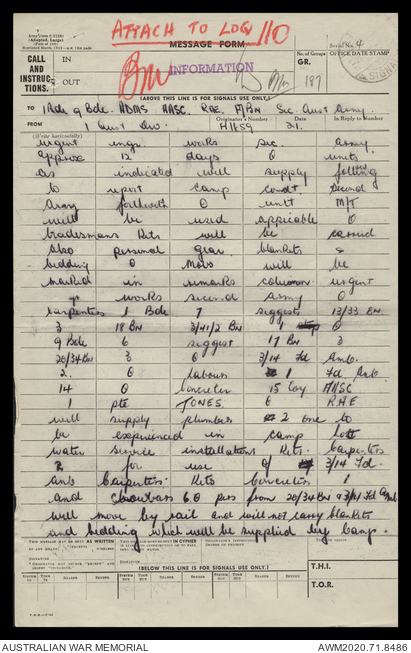 ATTACH TO LOG 110
MESSAGE FORM
Serial No. 4
CALL AND INSTRUCTIONS.
IN
OUT
INFORMATION
No. of Groups
GR.
187
OFFICE DATE STAMP
(ABOVE THIS LINE IS FOR SIGNALS USE ONLY.)
TO 1 Bde 9 Bde. ADMS AASC. RAE Sec. Aust Army.
FROM 1 Aust Div.
Originator's Number A1659
Date 21.
In Reply to Number
(Write horizontally)
urgent engr. works sec. army
approx 12 days O units
as indicated will supply following
to report camp condt second
army forthwith O unit M/T
will be used applicable O
tradesmans kits will be carried
also personal gear blankets &
bedding O Moves will be
marked in remarks column urgent
works second army O
carpenters 1 Bde 7 suggests 13/33 Bn
3 18 Bn 3/41/2 Bn 1
9 Bde 6 suggest 17 Bn 3
20/34 Bn 3 O 3/14 Fd Amb.
2. O labour 1 Fd Amb
14 O concreter 15 Coy AASC
1 pte JONES. 6 RAE
will supply plumbers 2 one to
be experienced in camp
water service installations kits. carpenters
2 for use of 3/14 Fd.
Amb carpenters kits concreters 1
and crowbars 60 pers from 20/34 Bn & 3/14 Fd Amb
will move by rail and will not carry blankets
and bedding which will be supplied by camp.
THIS MESSAGE MAY BE SENT AS WRITTEN
IN CIPHER
(BELOW THIS LINE IS FOR SIGNALS USE ONLY.)
SYSTEM
TIME
READER
SENDER
T.H.I.
T.O.R.
AUSTRALIAN WAR MEMORIAL
AWM2020.71.8486